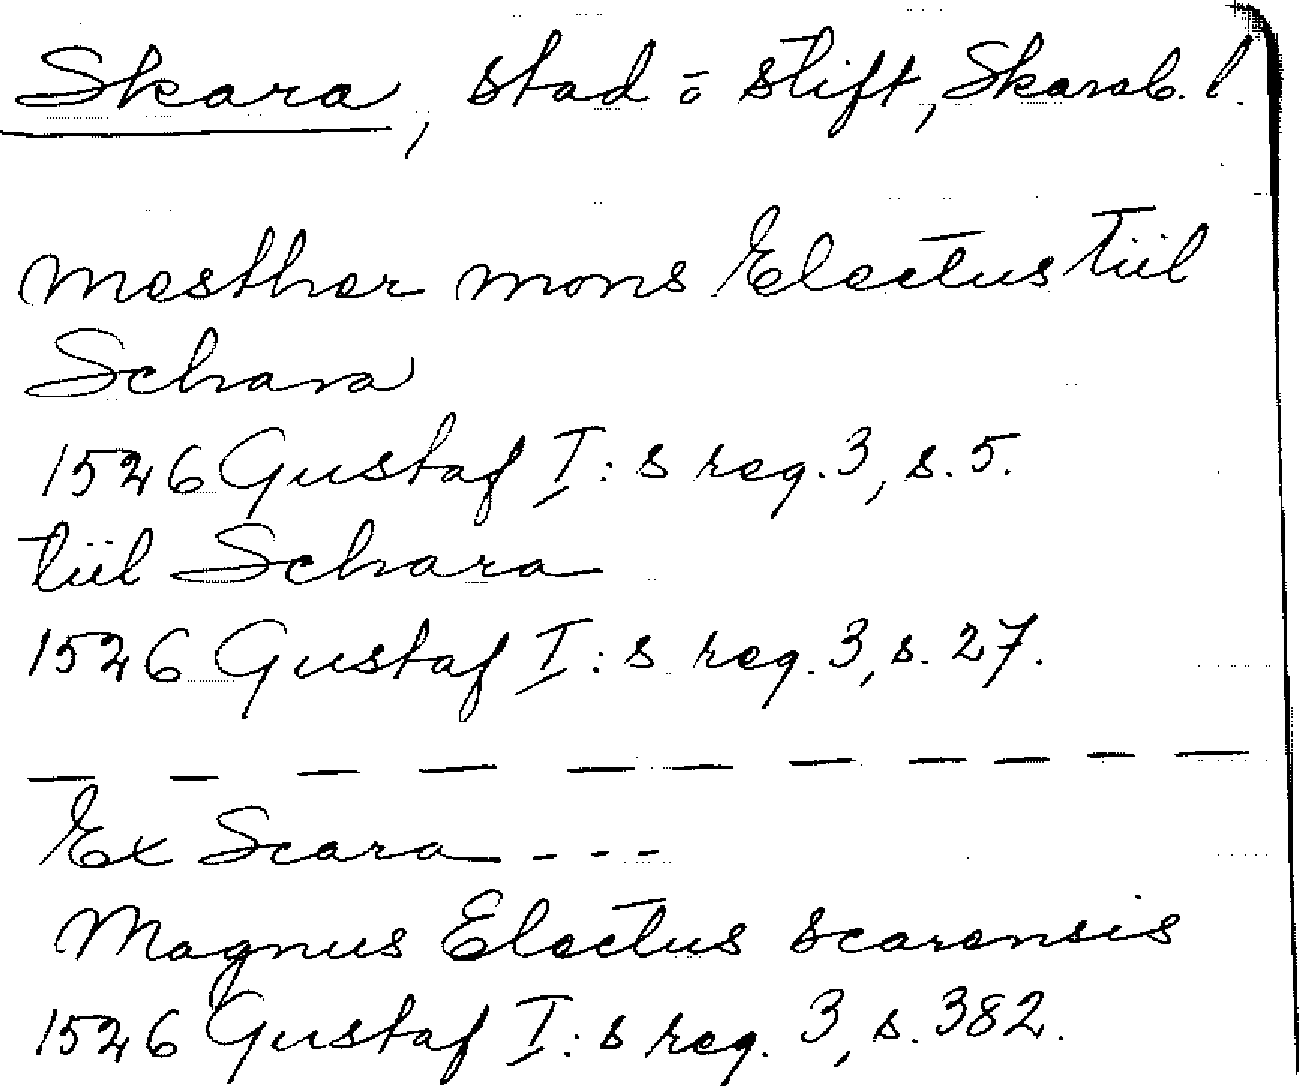 Skara, stad o stift, Skarab. l.
mesther mons Electus tiil
Schara
1526 Gustaf I:s reg. 3, s. 5.
tiil Schara
1526 Gustaf I:s reg. 3, s. 27.
— — — — — — — — — — —
Ex Scara - - -
Magnus Electus scarensis
1526 Gustaf I:s reg. 3, s. 382.